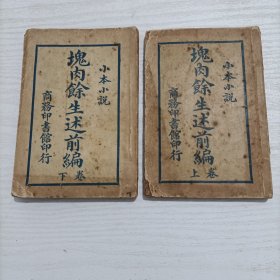 小本小説
塊肉餘生述前編
卷下
商務印書館印行
小本小説
塊肉餘生述前編
卷上
商務印書館印行